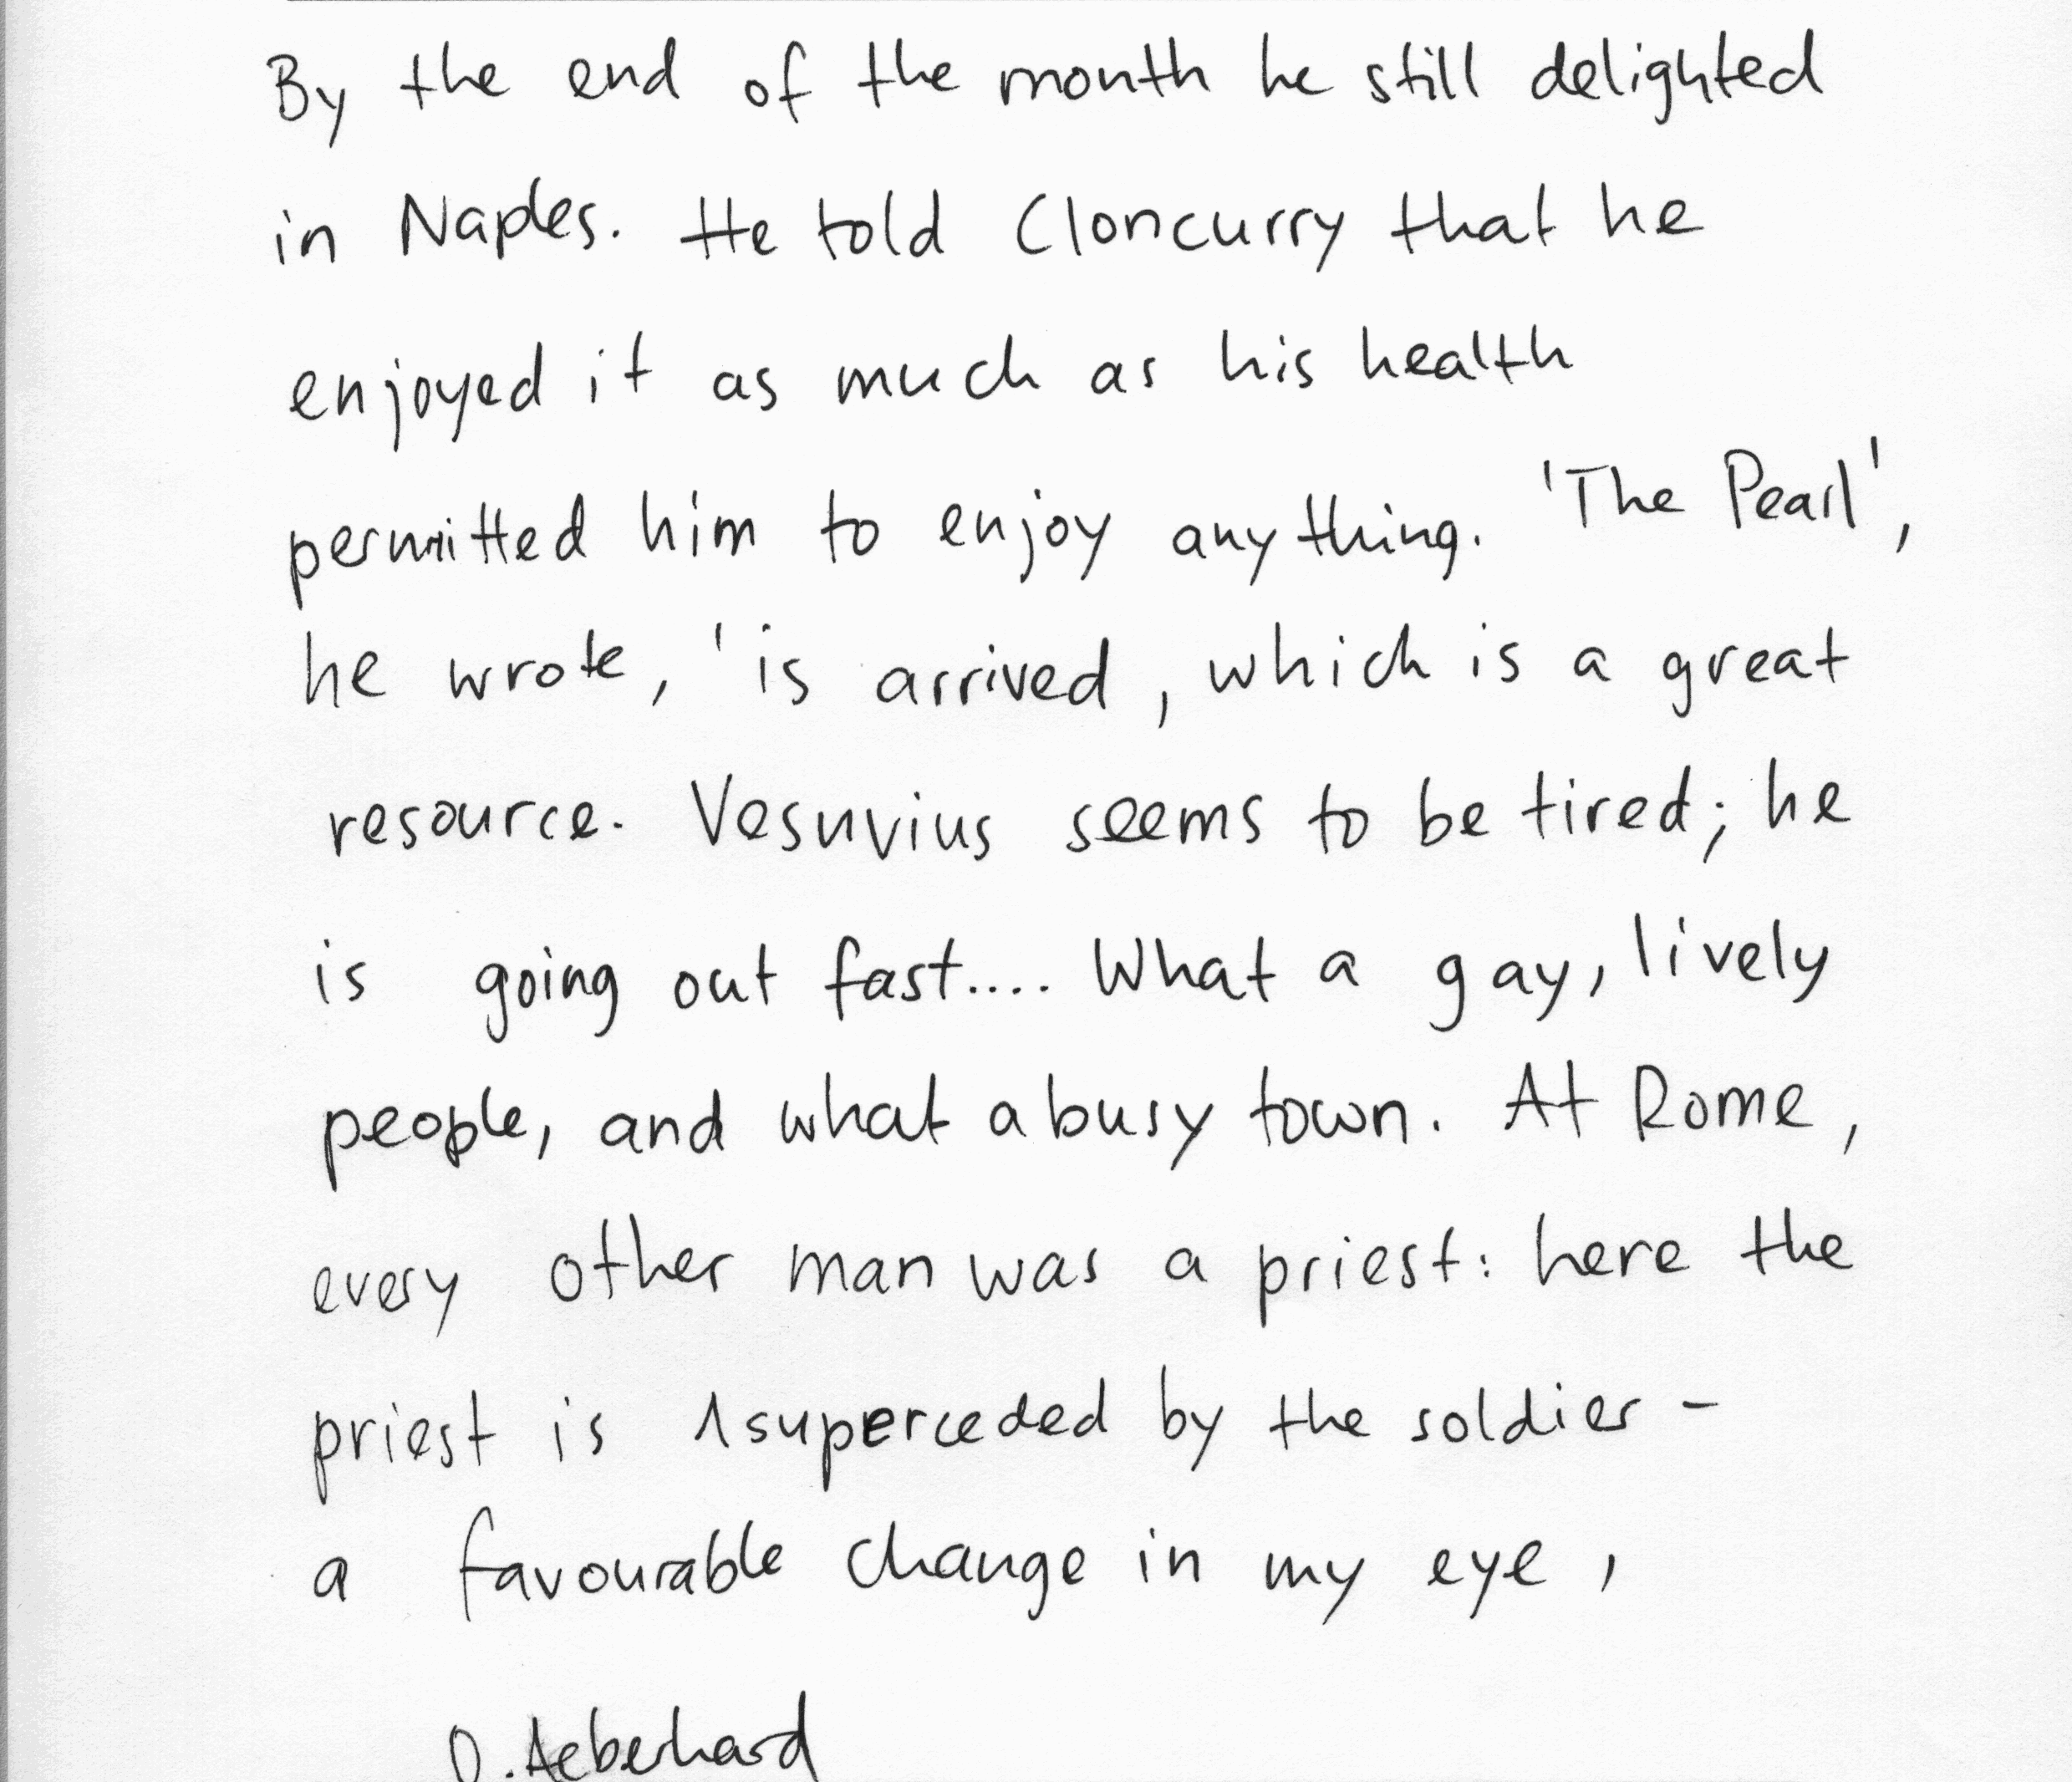 By the end of the month he still delighted
in Naples. He told Cloncurry that he
enjoyed it as much as his health
permitted him to enjoy anything. 'The Pearl',
he wrote, 'is arrived, which is a great
resource. Vesuvius seems to be tired; he
is going out fast.... What a gay, lively
people, and what a busy town. At Rome,
every other man was a priest: here the
priest is superceded by the soldier -
a favourable change in my eye,
D. Aeberhard